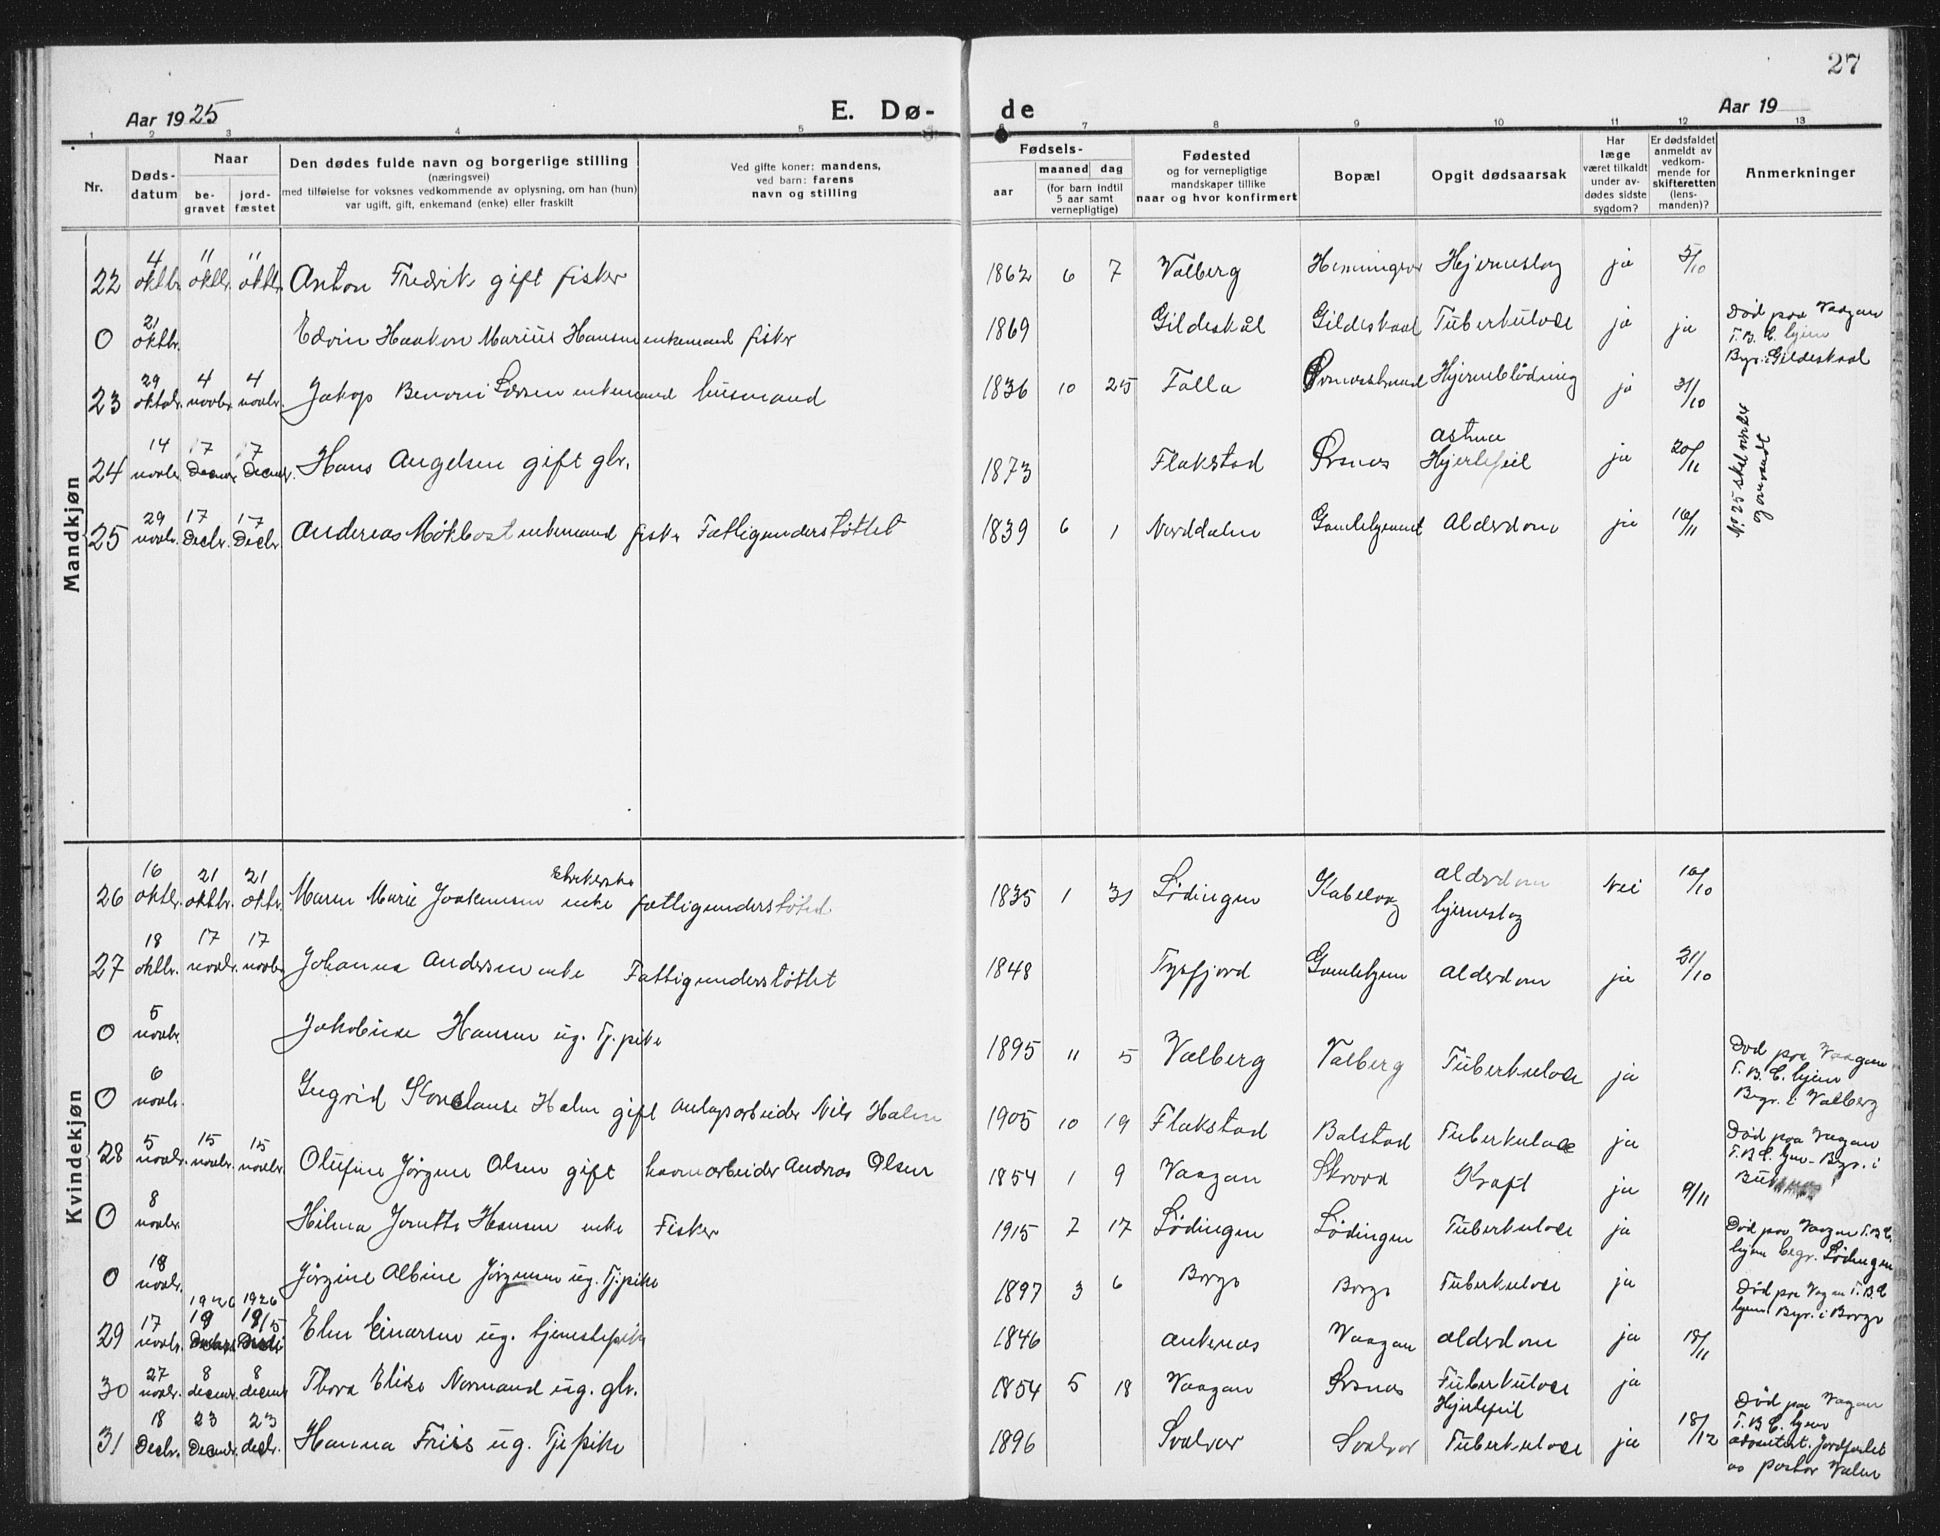 27
Aar 1925 E. Dø- de Aar 19
1 2 3 4 5 6 7 8 9 10 11 12 13
Nr.
Døds-
datum
Naar
be-
gravet
jord-
fæstet
Den dødes fulde navn og borgerlige stilling
(næringsvei)
med tilføielse for voksnes vedkommende av oplysning, om han (hun)
var ugift, gift, enkemand (enke) eller fraskilt
Ved gifte koner: mandens,
ved barn: farens
navn og stilling
Fødsels-
aar
maaned dag
(for barn indtil
5 aar samt
vernepligtige)
Fødested
og for vernepligtige
mandskaper tillike
naar og hvor konfirmert
Bopæl
Opgit dødsaarsak
Har
læge
været tilkaldt
under av-
dødes sidste
sygdom?
Er dødsfaldet
anmeldt av
vedkom-
mende for
skifteretten
(lens-
manden)?
Anmerkninger
Mandkjøn
22 4 oktbr. 11 oktbr. 11 oktbr. Anton Fredrik gift fisker 1862 6 7 Valberg Hjerneslag ja 5/10
0 21 oktbr. Edvin Haakon Marius Hansen enkemand fisker 1869 Gildeskål Gildeskaal Tuberkulose ja ja Død paa Vaagan
T.B.C. hjem
Bgr. i Gildeskaal
23 29 oktobr. 4 novbr. 4 novbr. Jakop Benoni Larsen enkemand husmand 1836 10 25 Falla Hjerneblödning ja 31/10
24 14 novbr. 17 Decmr. 17 Decmr. Hans Angelsen gift gbr. 1873 Flakstad Ørsnes astma
Hjertefeil ja 20/11
No. 25 skal
25 29 novbr. 17 Decbr. 17 Decbr. Andreas Møkbost enkemand fisker Fattigunderstøttet 1839 6 1 Norddalen Gamlehjemmet Alderdom ja 16/11
Kvindekjøn
26 16 oktbr. 21 oktbr. 21 oktbr. Maren Marie Joakimsen enke fattigunderstøted 1835 1 31 Lödingen Kabelvag alderdom
hjerneslag Nei 16/10
27 18 oktbr. 17 novbr. 17 novbr. Johanna Andersen enke Fattigunderstøttet 1848 Tysfjord Gamlehjem alderdom ja 21/10
0 5 novbr. Jakobine Hansen ug. Tj.pike 1895 11 5 Valberg Valberg Tuberkulose ja Død paa Vaagan
T.B.C. hjem
Begr. i Valberg
0 6 novbr. Ingrid Konstanse Halm gift anlagsarbeider Nils Halm 1905 10 19 Flakstad Balstad Tuberkulose ja Død paa Vagan
T.B.C. hjem - Bgr. i
28 5 novbr. 15 novbr. 15 novbr. Olufine Jörgine Olsen gift havnarbeider Andreas Olsen 1854 1 9 Vaagan Skrova Kraft ja 9/11
0 8 novbr. Hilma Jonette Hansen enke Fisker 1915 7 17 Lödingen Lödingen Tuberkulose ja Död paa Vaagan T.B.C.
hjem begr. Lödingen
0 18 novbr. Jörgine Albine Jörgensen ug. Tj.pike 1897 3 6 Borge Borge Tuberkulose ja Død paa Vagan T.B.C
hjem Bgr. i Borge
29 17 novbr. 1926 1926 Elen Einarsen ug. tjenestepike 1846 ankenes Vaagan alderdom ja 18/11
30 27 novbr. 8 decmr. 8 decmr. Thora Elise Normand ug. gbr. 1854 5 18 Vaagan Ørsnes Tuberkulose
Hjertefeil ja
31 18 Decbr. 23 Decmr. 23 decbr. Hanna Friis ug. Tjepike 1896 Svolvær Svolvær Tuberkulose ja 18/12 Död paa Vagan
T.B.C. hjem
Jordfæstet
av pastor